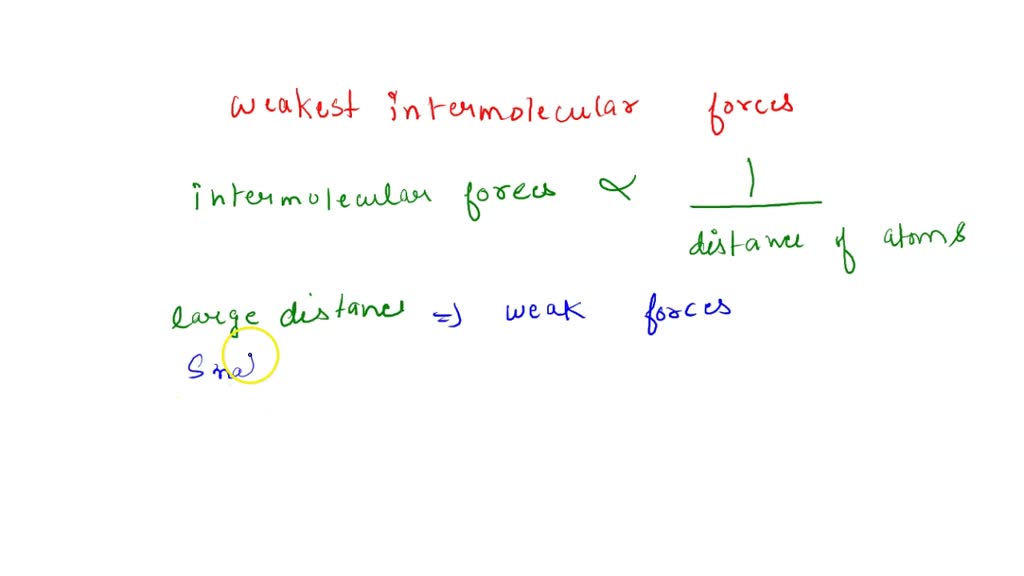 weakest intermolecular forces
intermolecular forces ∝ 1
distance of atoms
large distance ⇒ weak forces
Sma